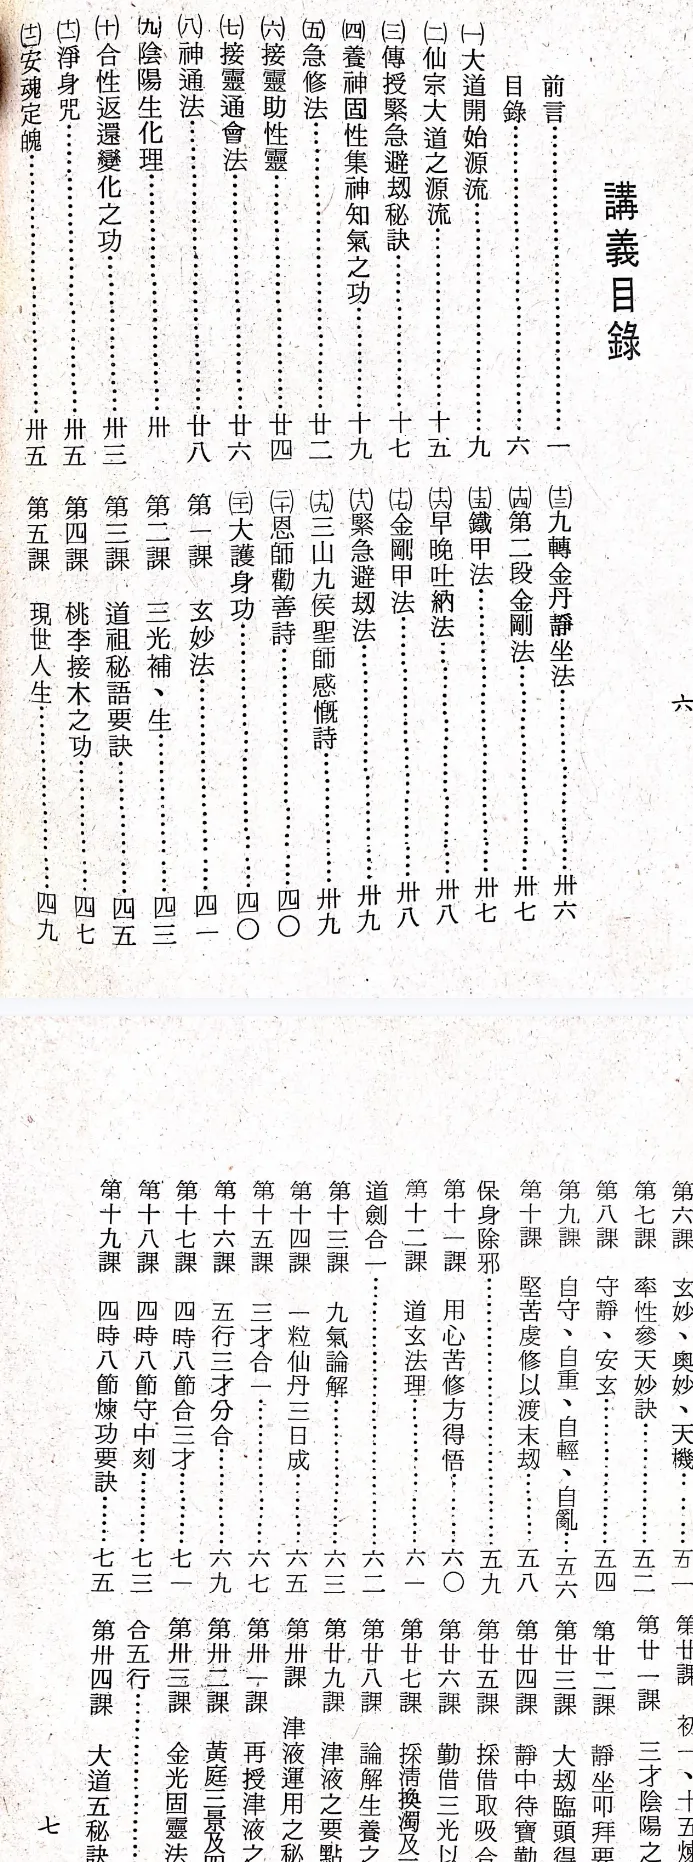 講義目錄
前言……一
目錄……六
㈠大道開始源流……九
㈡仙宗大道之源流……十五
㈢傳授緊急避刼秘訣……十七
㈣養神固性集神知氣之功……十九
㈤急修法……廿二
㈥接靈助性靈……廿四
㈦接靈通會法……廿六
㈧神通法……廿八
㈨陰陽生化理……卅
㈩合性返還變化之功……卅三
(十一)淨身咒……卅五
(十二)安魂定魄……卅五
(十三)九轉金丹靜坐法……卅六
(十四)第二段金剛法……卅七
(十五)鐵甲法……卅七
(十六)早晚吐納法……卅八
(十七)金剛甲法……卅八
(十八)緊急避刼法……卅九
(十九)三山九侯聖師感慨詩……卅九
(二十)恩師勸善詩……四〇
(二十)大護身功……四〇
第一課 玄妙法……四一
第二課 三光補、生……四三
第三課 道祖秘語要訣……四五
第四課 桃李接木之功……四七
第五課 現世人生……四九
六
第六課 玄妙、奧妙、天機……五一
第七課 率性參天妙訣……五二
第八課 守靜、安玄……五四
第九課 自守、自重、自輕、自亂…五六
第十課 堅苦虔修以渡末刼……五八
保身除邪……五九
第十一課 用心苦修方得悟……六〇
第十二課 道玄法理……六一
道劍合一……六二
第十三課 九氣論解……六三
第十四課 一粒仙丹三日成……六五
第十五課 三才合一……六七
第十六課 五行三才分合……六九
第十七課 四時八節合三才……七一
第十八課 四時八節守中刻……七三
第十九課 四時八節煉功要訣……七五
第廿課 初一、十五煉
第廿一課 三才陰陽之
第廿二課 靜坐叩拜要
第廿三課 大刼臨頭得
第廿四課 靜中待寶勤
第廿五課 採借取吸合
第廿六課 勤借三光以
第廿七課 採清換濁及
第廿八課 論解生養之
第廿九課 津液之要點
第卅課 津液運用之秘
第卅一課 再授津液之
第卅二課 黃庭三景及四
第卅三課 金光固靈法
合五行……
第卅四課 大道五秘訣
七